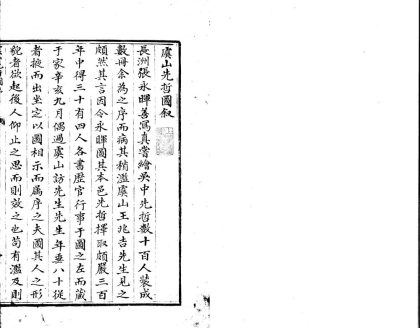 虞山先哲圖叙
長洲張永暉善寫真嘗繪吳中先哲數十百人裝成
數冊余為之序而病其稍濫虞山王兆吉先生見之
頗然其言因令永暉圖其本邑先哲擇取頗嚴三百
年中得三十有四人各書歷官行事于圖之左而藏
于家辛亥九月偶過虞山訪先生先生年垂八十從
者掖而出坐定以圖相示而屬序之夫圖其人之形
貌者欲起後人仰止之思而則效之也苟有濫及則